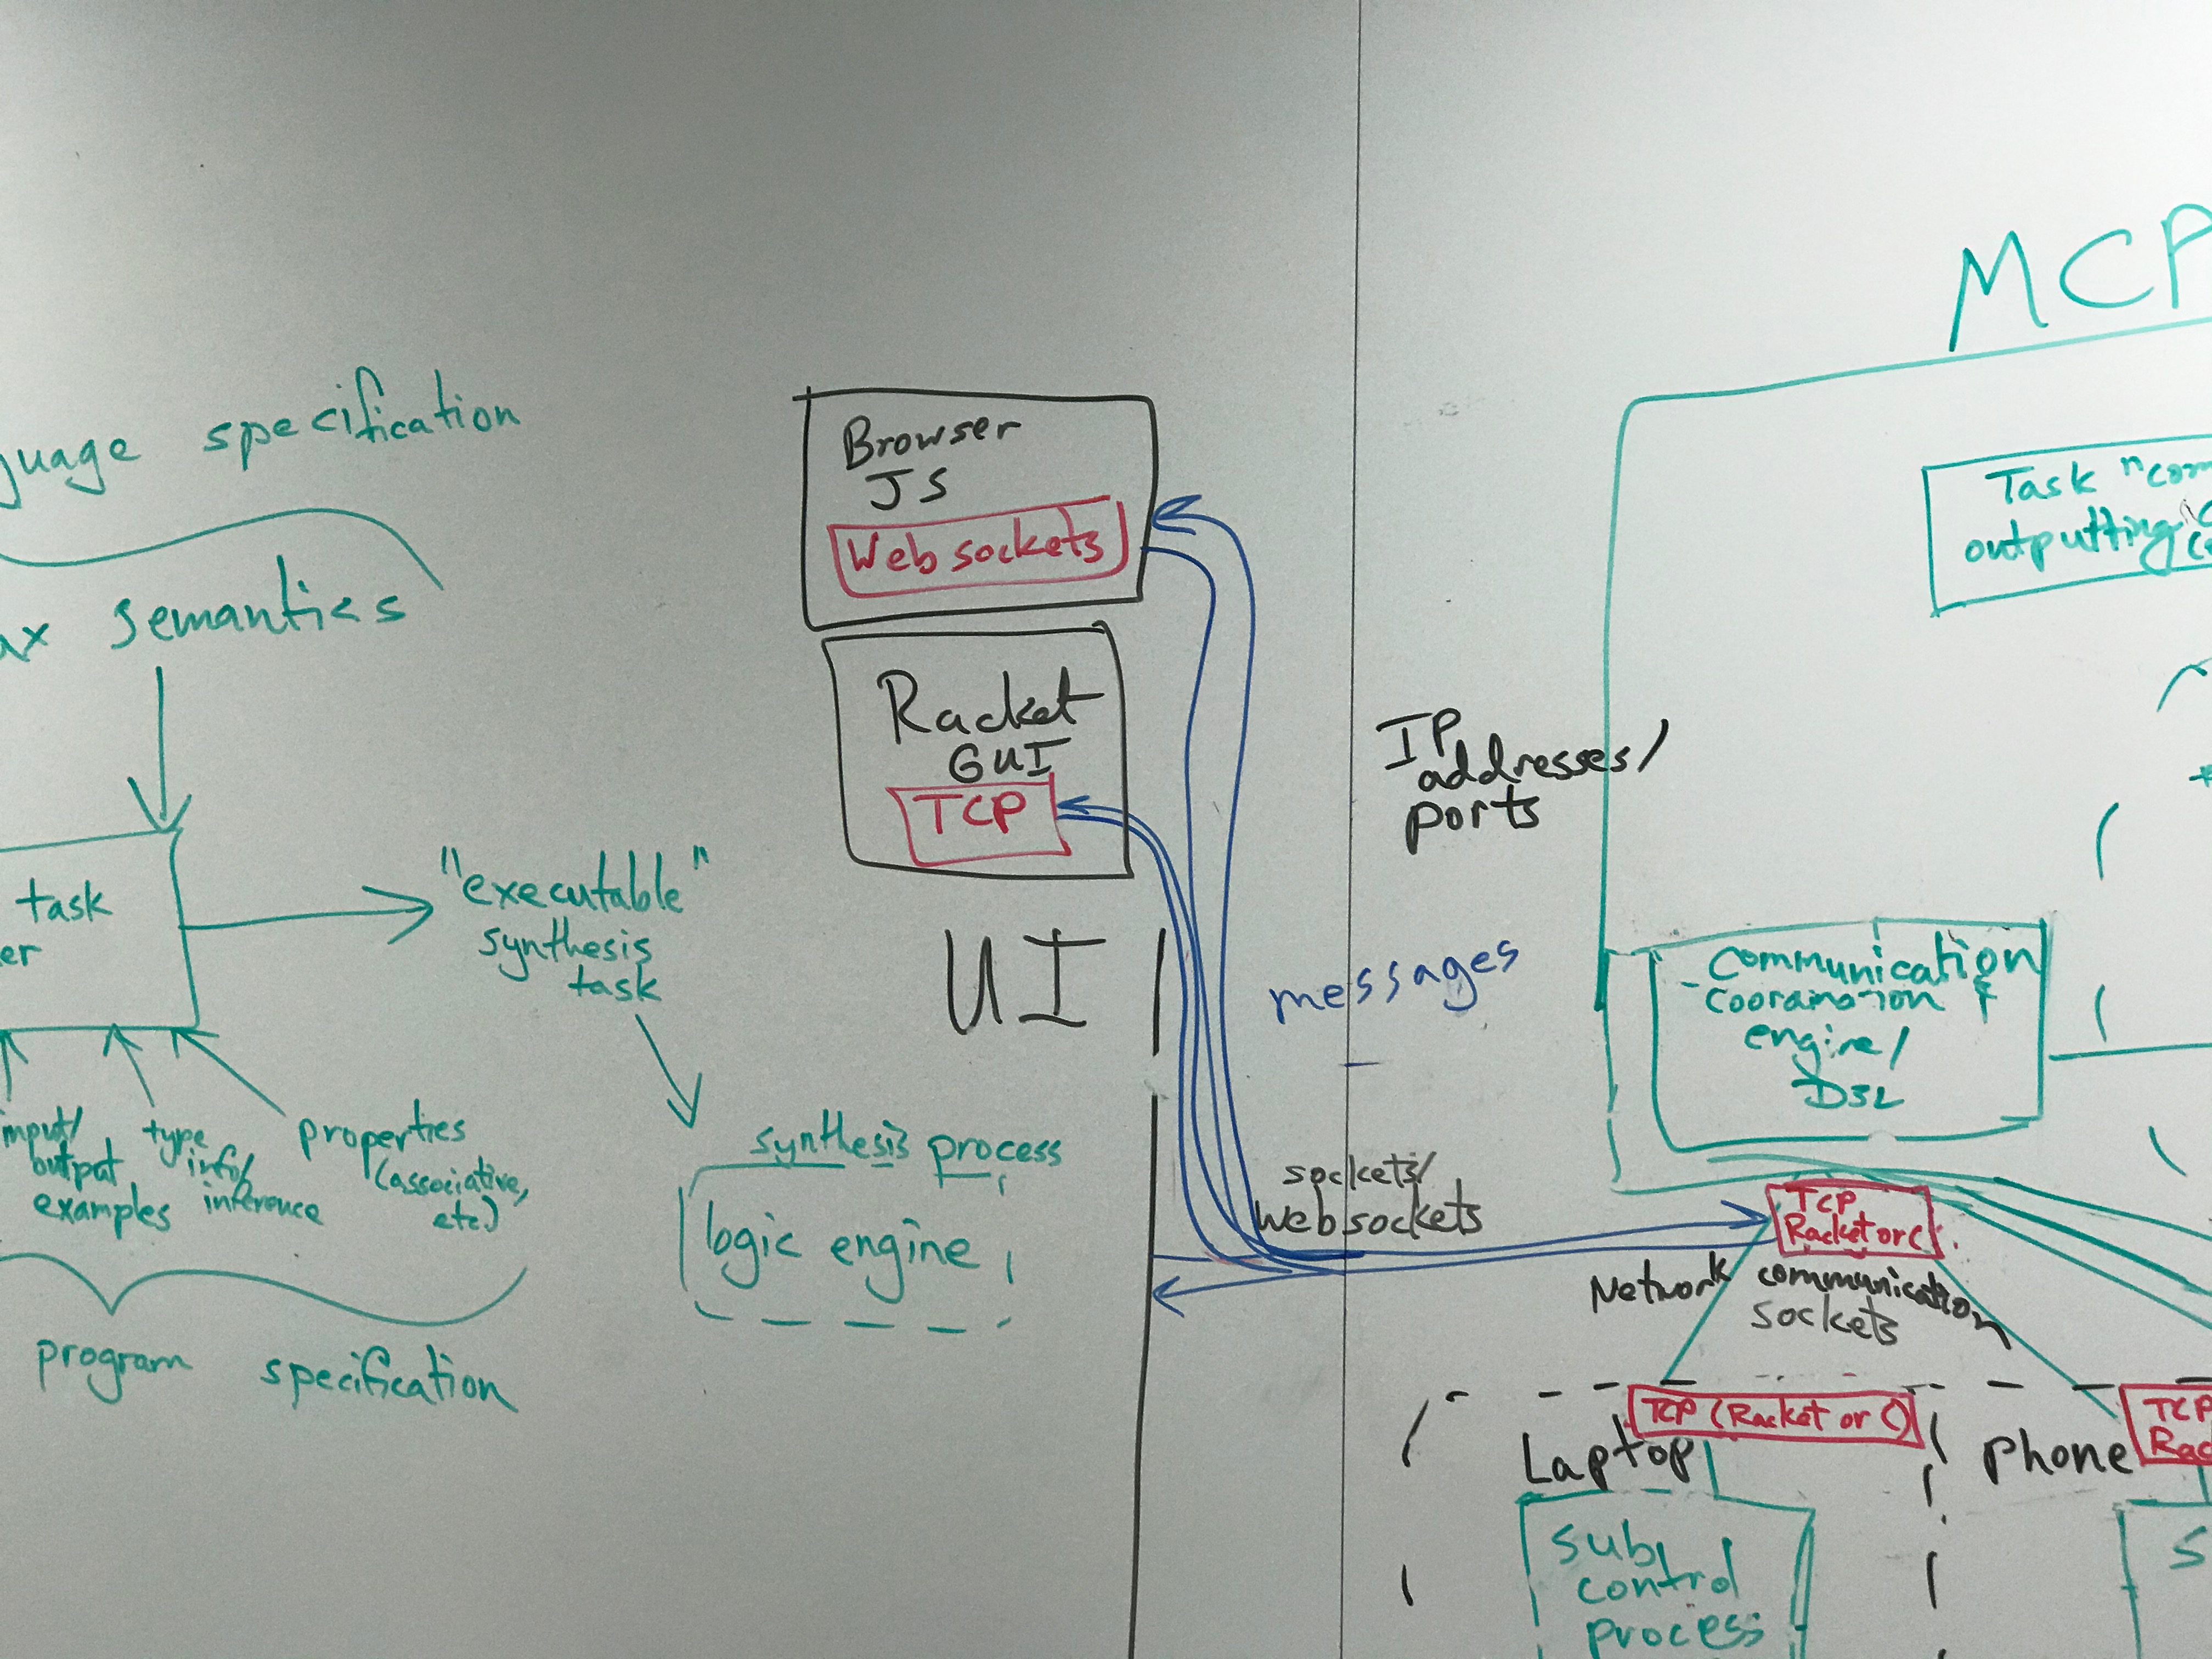 guage specification
ax semantics
task
er
"executable"
synthesis
task
input/
output
examples
type
info/
inference
properties
(associative,
etc)
program specification
synthesis process
logic engine
Browser
JS
Web sockets
Racket
GUI
TCP
UI
messages
IP
addresses/
ports
sockets/
websockets
MCP
Task "com
outputting
communication
coordination &
engine/
DSL
TCP
Racket or C
Network communication
sockets
TCP (Racket or C)
Laptop
sub
control
process
Phone
TCP
Rac
S